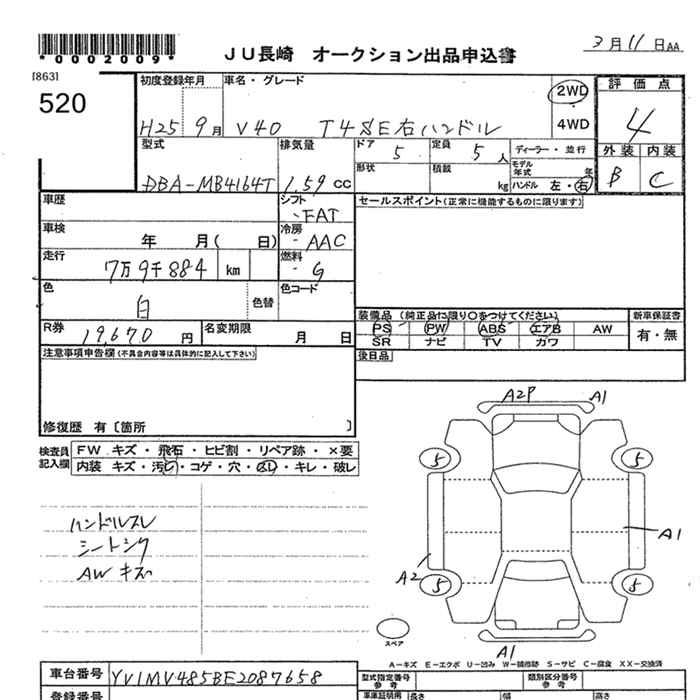 *0002009*
JU長崎 オークション出品申込書
3月11日AA
[863]
520
初度登録年月
車名・グレード
H25 9月 V40 T4SE右ハンドル
2WD
4WD
評価点
4
外装 内装
B C
型式
DBA-MB4164T
排気量
1.59 CC
ドア 5
定員 5人
ディーラー・並行
形状
積載 kg
モデル年式 年
ハンドル 左・右
車歴
シフト
FAT
セールスポイント(正常に機能するものに限ります)
車検
年 月( 日)
冷房
AAC
走行
7万9千884 km
燃料
G
色
白
色替
色コード
装備品(純正品に限り○をつけてください)
PS PW ABS エアB AW
SR ナビ TV カワ
新車保証書
有・無
R券
19,670 円
名変期限
月 日
後日品
注意事項申告欄(不具合内容等は具体的に記入して下さい)
修復歴 有〔箇所 〕
検査員記入欄
FW キズ・飛石・ヒビ割・リペア跡・×要
内装 キズ・汚レ・コゲ・穴・スレ・キレ・破レ
ハンドルスレ
シートシワ
AWキズ
A2P A1
5 5
A1
A2
5 5
スペア
A1
A-キズ E-エクボ U-凹み W-補修跡 S-サビ C-腐食 XX-交換済
車台番号
YV1MV485BE2087658
型式指定番号
参考
類別区分番号
参考
登録番号
車庫証明用
長さ
幅
高さ